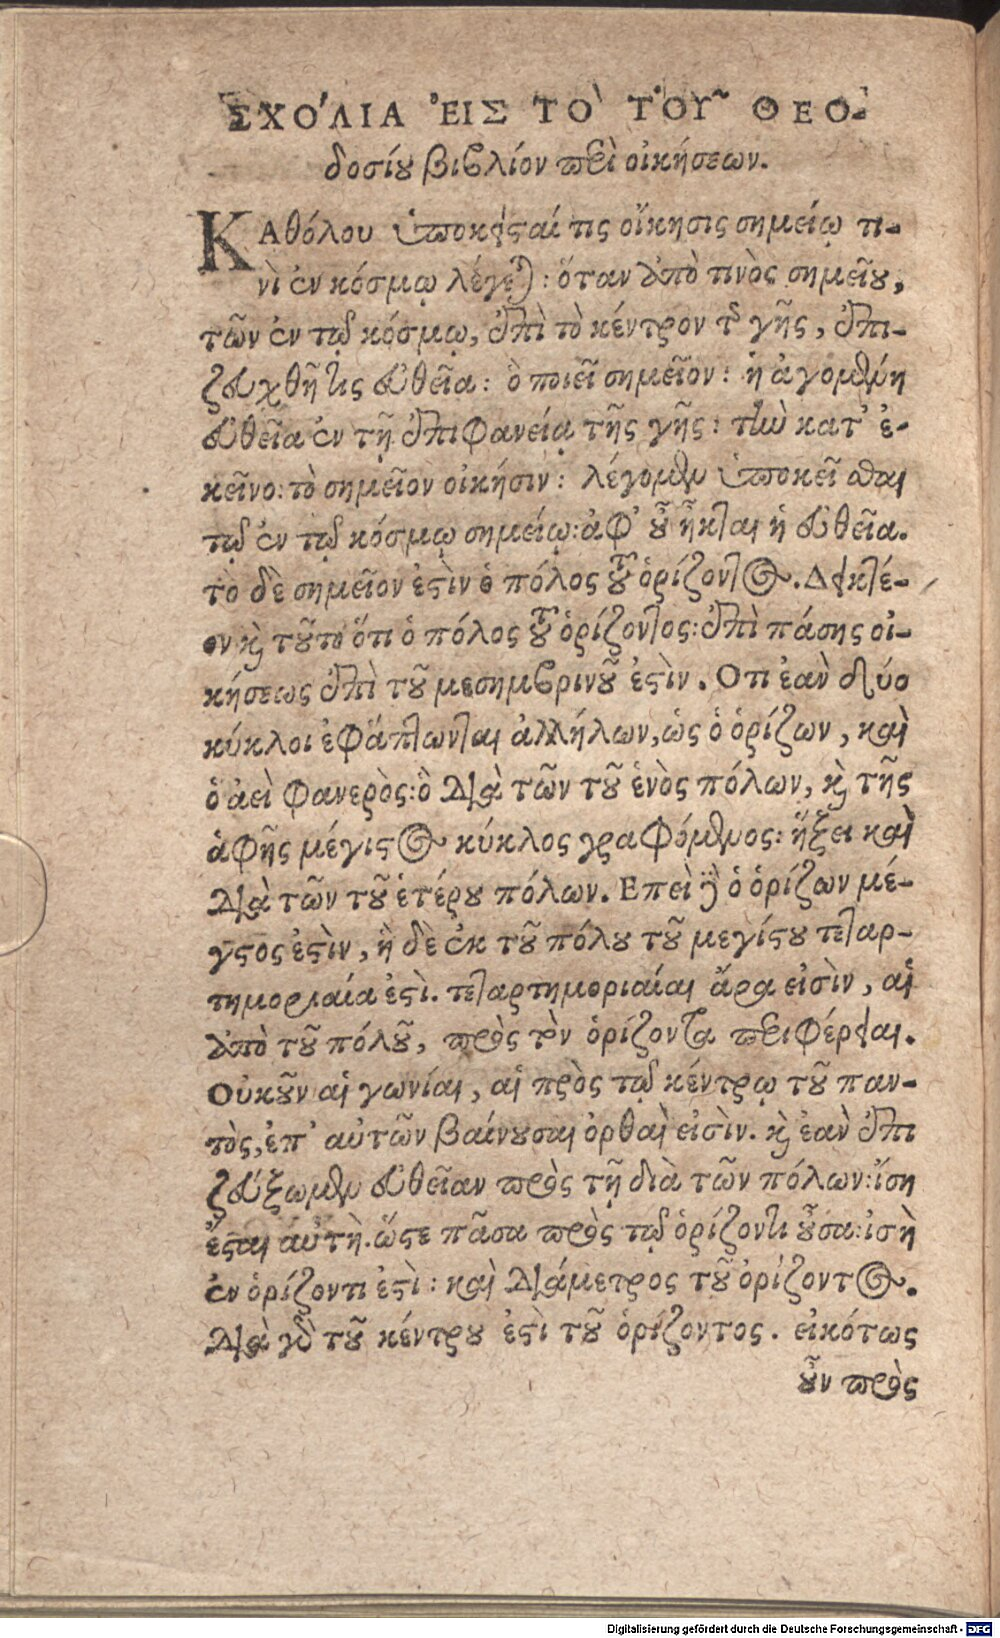 ΣΧΟ'ΛΙΑ ἘΙΣ ΤΟ` ΤΟΥ͂ ΘΕΟ-
δοσίου βιβλίον περὶ οἰκήσεων.
ΚΑθόλου ὑποκεῖσθαί τις οἴκησις σημείῳ τι-
νὶ ἐν κόσμῳ λέγεται: ὅταν ἀπὸ τινὸς σημείου,
τῶν ἐν τῷ κόσμῳ, ἐπὶ τὸ κέντρον τῆς γῆς, ἐπι-
ζευχθῆ τις εὐθεῖα: ὃ ποιεῖ σημεῖον: ἡ ἀγομένη
εὐθεῖα ἐν τῇ ἐπιφανείᾳ τῆς γῆς: τὴν κατ' ἐ-
κεῖνο: τὸ σημεῖον οἰκήσιν: λέγομεν ὑποκεῖσθαι
τῷ ἐν τῷ κόσμῳ σημείῳ: ἀφ' οὗ ἦκται ἡ εὐθεῖα.
τὸ δὲ σημεῖον ἐστὶν ὁ πόλος τοῦ ὁρίζοντος. Δεικτέ-
ον καὶ τοῦτο ὅτι ὁ πόλος τοῦ ὁρίζοντος: ἐπὶ πάσης οἰ-
κήσεως ἐπὶ τοῦ μεσημβρινοῦ ἐστὶν. Οτι ἐὰν δύο
κύκλοι ἐφάπτωνται ἀλλήλων, ὡς ὁ ὁρίζων, καὶ
ὁ ἀεὶ φανερὸς: ὃ διὰ τῶν τοῦ ἑνὸς πόλων, καὶ τῆς
ἁφῆς μέγιστος κύκλος γραφόμενος: ἥξει καὶ
διὰ τῶν τοῦ ἑτέρου πόλων. Επεὶ οὖν ὁ ὁρίζων μέ-
γιστος ἐστὶν, ἡ δὲ ἐκ τοῦ πόλου τοῦ μεγίστου τεταρ-
τημοριαία ἐστὶ. τεταρτημοριαίαι ἄρα εἰσὶν, αἱ
ἀπὸ τοῦ πόλοῦ, πρὸς τὸν ὁρίζοντα περιφέρειαι.
Οὐκοῦν αἱ γωνίαι, αἱ πρὸς τῷ κέντρῳ τοῦ παν-
τὸς, ἐπ' αὐτῶν βαίνουσαι ὀρθαὶ εἰσὶν. καὶ ἐὰν ἐπι
ζεύξωμεν εὐθεῖαν πρὸς τῇ διὰ τῶν πόλων: ἴση
ἔσται αὐτὴ. ὥστε πᾶσα πρὸς τῷ ὁρίζοντι οὖσα: ἰσὴ
ἐν ὁρίζοντι ἐστὶ: καὶ διάμετρος τοῦ ὁρίζοντος.
διὰ γὰρ τοῦ κέντρου ἐστὶ τοῦ ὁρίζοντος. εἰκότως
οὖν πρὸς
Digitalisierung gefördert durch die Deutsche Forschungsgemeinschaft - DFG